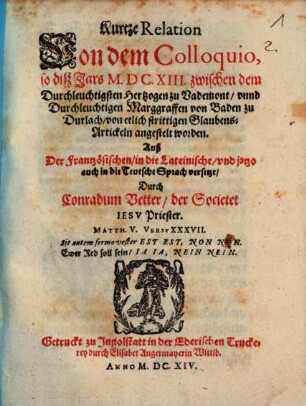 1
2
Kurtze Relation
Von dem Colloquio,
so diß Jars M. DC. XIII. zwischen dem
Durchleuchtigsten Hertzogen zu Vademont / vnnd
Durchleuchtigen Marggraffen von Baden zu
Durlach / von etlich strittigen Glaubens-
Artickeln angestelt worden.
Auß
Der Frantzösischen / in die Lateinische / vnd jetzo
auch in die Teutsche Sprach versetzt /
Durch
Conradum Vetter / der Societet
IESV Priester.
MATTH. V. VERSV XXXVII.
Sit autem sermo vester EST EST, NON NON.
Ewer Red soll sein / IA IA, NEIN NEIN.
Getruckt zu Ingolstatt in der Ederischen Trucke-
rey durch Elisabet Angermayerin Wittib.
ANNO M. DC. XIV.